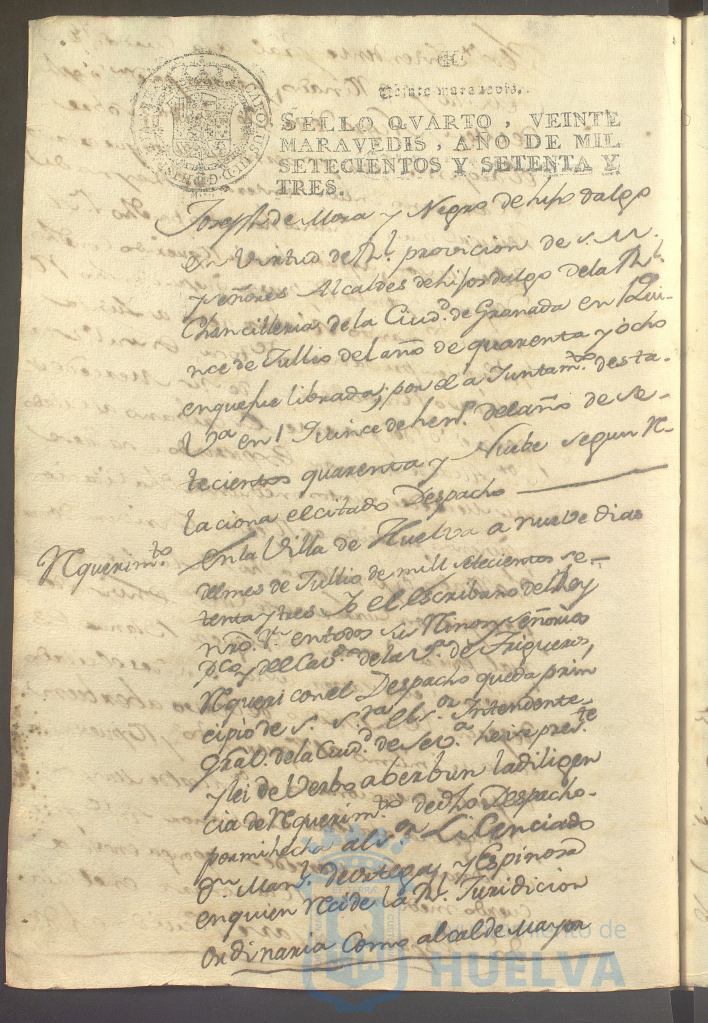 Veinte maravedis.
SELLO QVARTO, VEINTE
MARAVEDIS, AÑO DE MIL
SETECIENTOS Y SETENTA Y
TRES.
Joseph de Mora y Negro de hijodalgo
en Virtud de Rl. provicion de S. M.
y señores Alcaldes de hijosdalgo de la Rl.
Chancilleria de la Ciud. de Granada en Qui-
nce de Jullio del año de quarenta y ocho
en que fue librada; por el a Juntamto. desta
Va. en Quince de hen. del año de se-
tecientos quarenta y Nuebe segun re-
laciona el citado Despacho
Requerimto. En la Villa de Huelva a nueve dias
del mes de Jullio de mill setecientos se-
tenta y tres Yo el escribano del Rey
nro. Sr. en todos sus Reinos y señorios
pco. y del Cav. de la Va. de Frigueros,
Requeri con el Despacho que da prin
cipio de S. Sra. el sor. Intendente
Gral. de la Ciud. de Seva. he in preste.
y lei de Verbo aberbun la diligen
cia de Requerimto. de dho Despacho
por mi hecha al sor. Licenciado
Dn. Manl. de ortega y Espinosa
en quien recide la Rl. Juridicion
ordinaria como alcalde Mayor
HUELVA